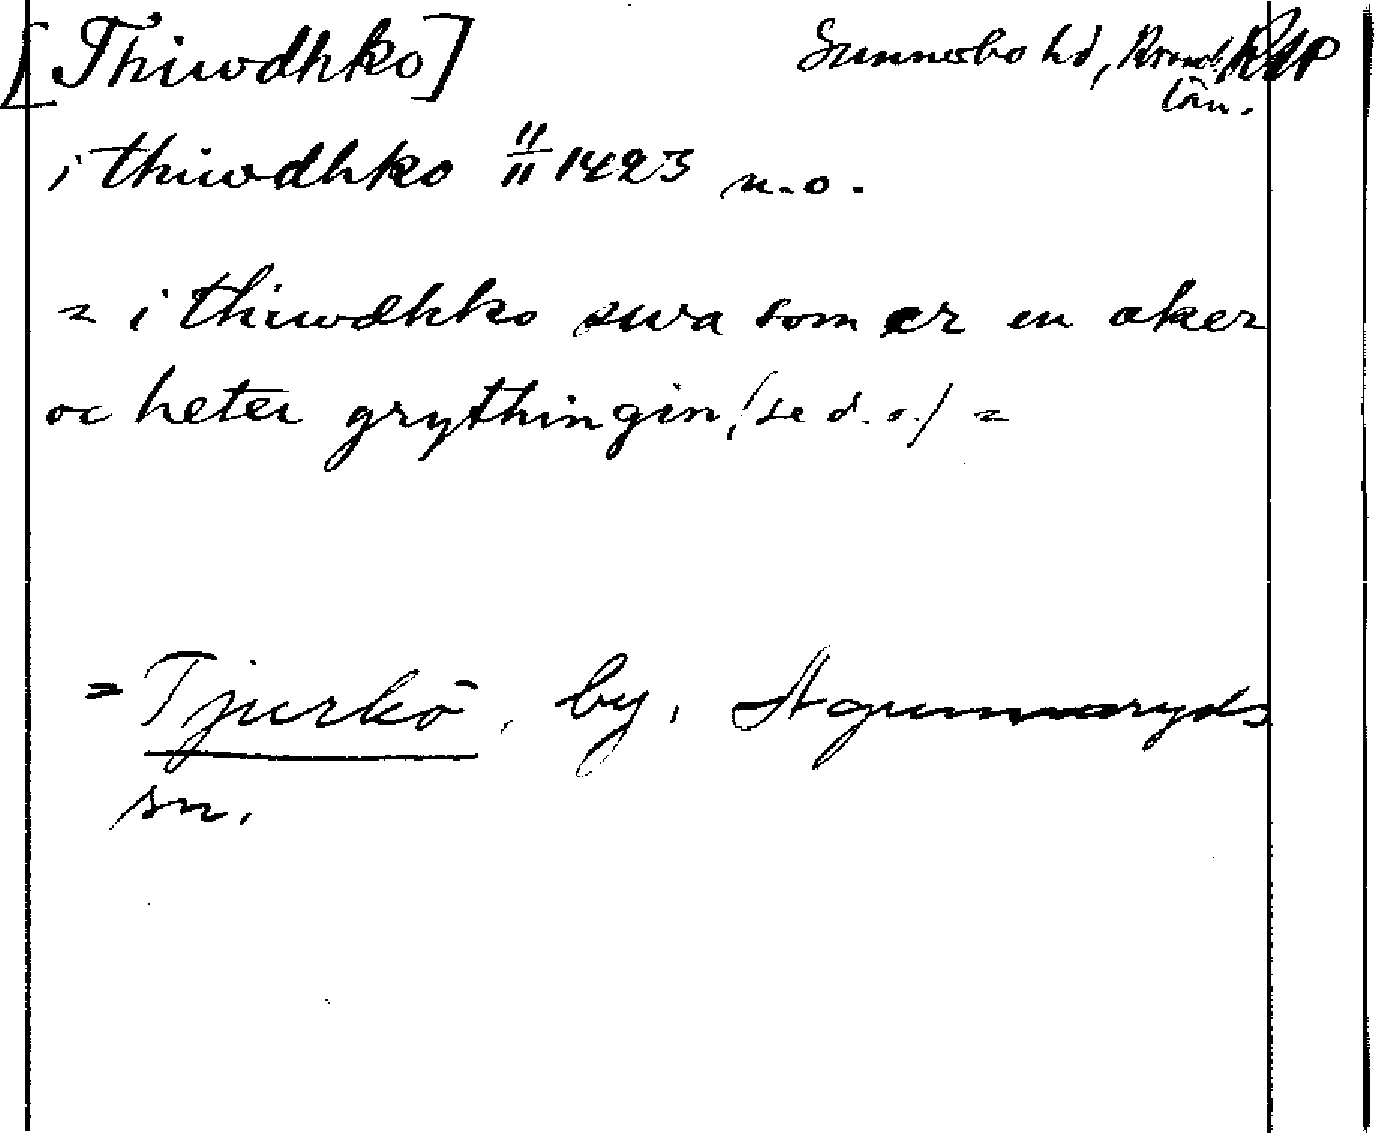 [Thiwdhko] Sunnerbo hd, Kronob. RAP
län.
i thiwdhko 11/11 1423 n.o.
= i thiwdhko swra som er en aker
oc heter grythingin, (se d.o.) =
= Tjurkö, by, Agunnaryds
sn.